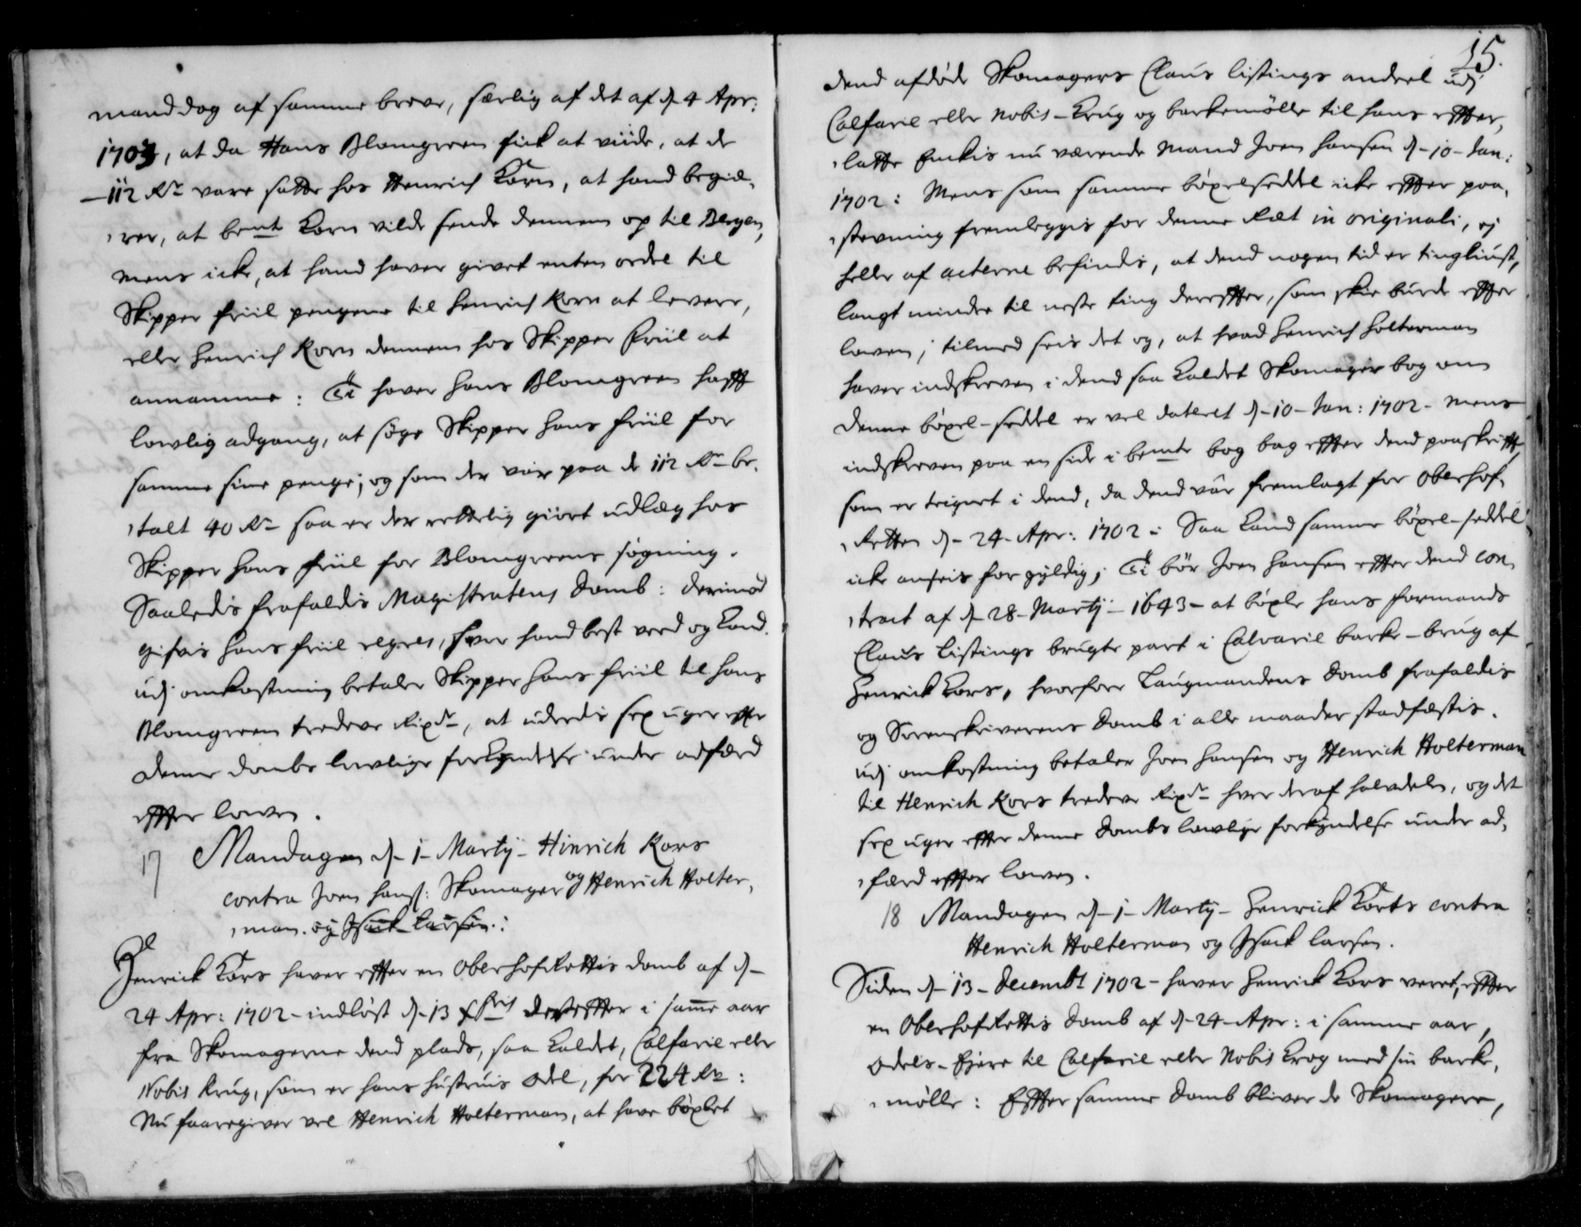 mand dog af samme breve, særlig af det af d. 4 Apr:
1703, at da Hans Blomgreen fick at viide, at de
112 Rdr vare satte hos Henrich Korn, at hand begiæ,
,rer, at bemte Korn vilde sende dennem op til Bergen,
mens icke, at hand haver givet enten ordre til
Skipper friil pengene til Henrich Korn at levere,
eller Henrich Korn dennem hos Skipper Friil at
annamme: Ti haver Hans Blomgreen hafft
lowlig adgang, at søge Skipper Hans friil for
samme sine penge; og som der var paa de 112 Rdr be,
,talt 40 Rdr saa er der rettelig giort udlæg hos
Skipper Hans friil for Blomgreens søgning.
Saaledis frafaldis Magistratens Domb: derimod
gifvis Hans friil regres, hvor hand best veed og kand.
udj omkostning betaler Skipper Hans friil til Hans
Blomgreen tredeve Rixdr, at uderedis sex uger effter
denne dombs lowlige forkyndelse under adfærd
effter lowen.
17 Mandagen d. 1 Martij Hinrich Kors
contra Joen Hans: Skomager og Henrich Holter,
,man. og Isack larsen.:
Henrick Kors haver effter en OberhofRettis domb af d.
24 Apr: 1702 indløst d. 13 Xbris dereffter i samme aar
fra Skomagerne dend plads, saa kaldet, Calfarie eller
Nobis krug, som er hans hustruis odel, for 224 Rdr:
Nu foaregiver vel Henrich Holterman, at have bøxlet
15.
dend afdøde Skomagers Claus listings andeel udj
Calfarie eller Nobis-Krug og barkemølle til hans effter,
,latte Enckis nu værende mand Joen Hansen d. 10 Jan:
1702: Mens som samme bøxelseddel icke effter paa,
,stevning fremleggis for denne Ræt in originali, ej
heller af acterne befindis, at dend nogen tid er tingliust,
langt mindre til neste ting dereffter, som skee burde effter
lowen; tilmed seis det og, at hvad Henrich Holterman
haver indskreven i dend saa kaldet Skomager bog om
denne bøxel-seddel er vel dateret d. 10 Jan: 1702 mens
indskreven paa en side i bemte bog bag effter dend paaskrifft
som er teignet i dend, da dend var fremlagt for Oberhof,
,Retten d. 24 Apr: 1702: Saa kand samme bøxel-seddel
icke ansees for gyldig; Ti bør Joen Hansen effter dend con,
,tract af d. 28 Martij 1643 at bøxle hans formands
Claus Listings brugte part i Calvarie barke-brug af
Henrick Kors, hvorfore Laugmandens domb frafaldis
og Sorenskriverens domb i alle maader stadfæstis.
udj omkostning betaler Joen Hansen og Henrich Holterman
til Henrich Kors tredeve Rixdr hver deraf halvdelen, og det
sex uger effter denne dombs lowlige forkyndelse under ad,
,færd effter lowen.
18 Mandagen d. 1 Martij Henrick Korts contra
Henrich Holterman og Isack larsen.
Siden d. 13 Decembr 1702 haver Henrick Kors veret, effter
en OberhofRettis domb af d. 24 Apr: i samme aar,
odels-Ejere til Calfarie eller Nobis Krog med sin barke,
,mølle: Effter samme domb bliver de Skomagere,